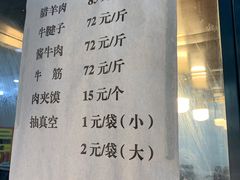 腊羊肉 85元/斤
牛腱子 72元/斤
酱牛肉 72元/斤
牛筋 72元/斤
肉夹馍 15元/个
抽真空 1元/袋(小)
2元/袋(大)